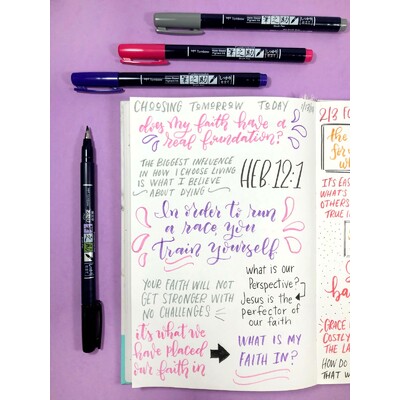 CHOOSING TOMORROW TODAY
does my faith have a
real foundation?
THE BIGGEST INFLUENCE
IN HOW I CHOOSE LIVING
IS WHAT I BELIEVE
ABOUT DYING
HEB. 12:1
In order to run
a race, you
train yourself
YOUR FAITH WILL NOT
GET STRONGER WITH
NO CHALLENGES
What is our
Perspective?
Jesus is the
perfector of
our faith
it's what we
have placed
our faith in
WHAT IS MY
FAITH IN?
2/3 F
the
for
w
ITS EAS
WHAT'S
OTHERS
TRUE I
ba
GRACE
COSTLY
THE LA
HOW DO
THAT W